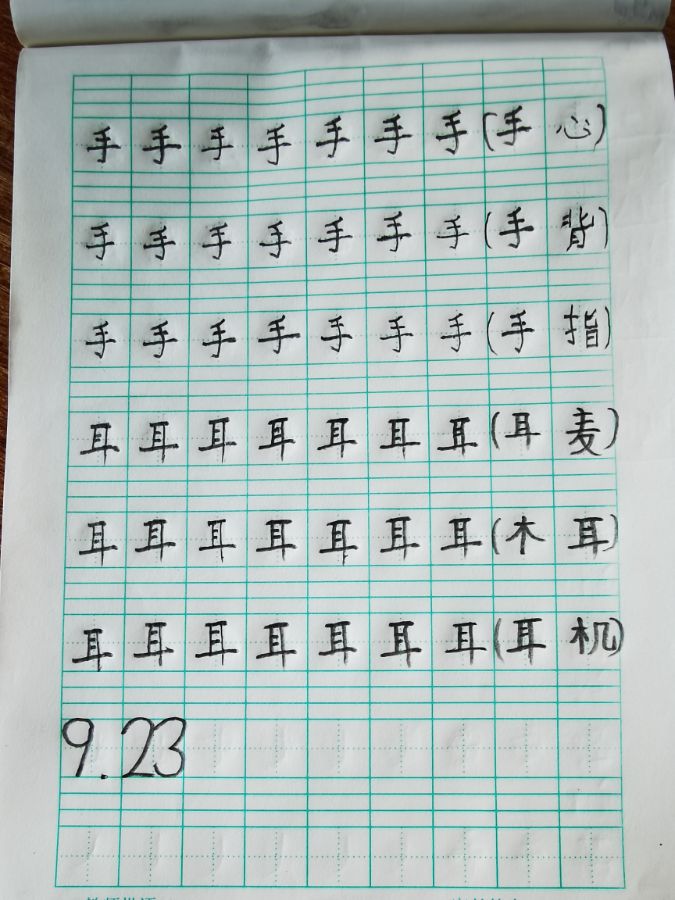 手手手手手手手(手心)
手手手手手手手(手背)
手手手手手手手(手指)
耳耳耳耳耳耳耳(耳麦)
耳耳耳耳耳耳耳(木耳)
耳耳耳耳耳耳耳(耳机)
9.23